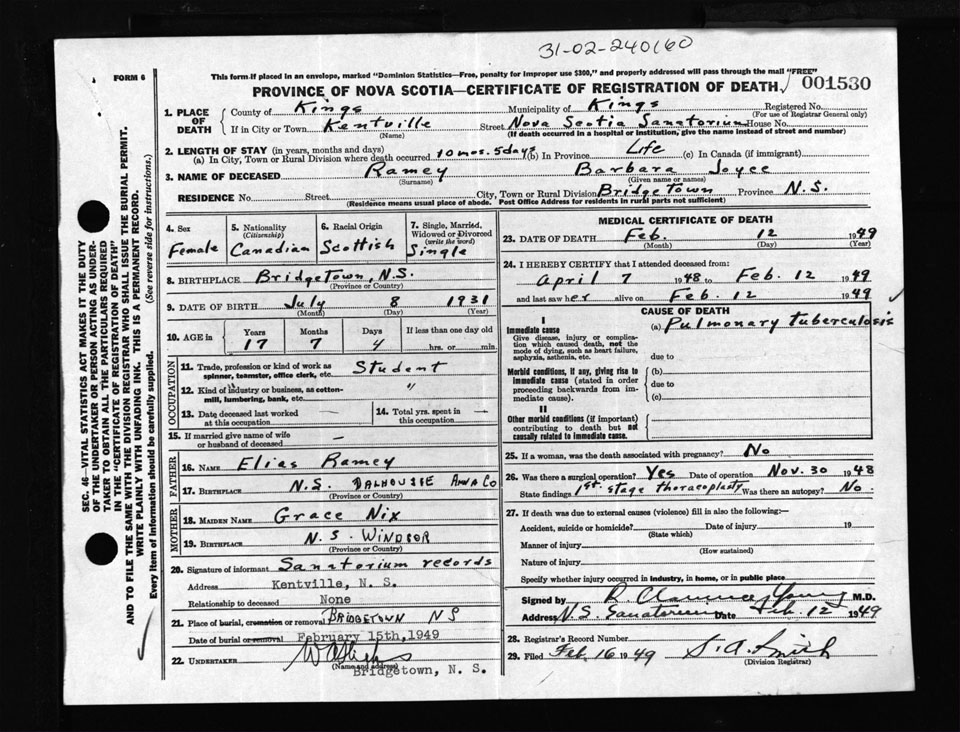 31-02-240160
FORM 6
This form if placed in an envelope, marked "Dominion Statistics—Free, penalty for improper use $300," and properly addressed will pass through the mail "FREE"
PROVINCE OF NOVA SCOTIA—CERTIFICATE OF REGISTRATION OF DEATH 001530
1. PLACE OF DEATH
County of Kings Municipality of Kings Registered No.
(For use of Registrar General only)
If in City or Town Kentville Street Nova Scotia Sanatorium House No.
(Name) (If death occurred in a hospital or institution, give the name instead of street and number)
2. LENGTH OF STAY (in years, months and days)
(a) In City, Town or Rural Division where death occurred 10 mos. 5 days (b) In Province Life (c) In Canada (if immigrant)
3. NAME OF DECEASED Ramey Barbara Joyce
(Surname) (Given name or names)
RESIDENCE No. Street City, Town or Rural Division BridgeTown Province N.S.
(Residence means usual place of abode. Post Office Address for residents in rural parts not sufficient)
4. Sex
Female
5. Nationality
(Citizenship)
Canadian
6. Racial Origin
Scottish
7. Single, Married, Widowed or Divorced
(write the word)
Single
8. BIRTHPLACE BridgeTown, N.S.
(Province or Country)
9. DATE OF BIRTH July 8 1931
(Month) (Day) (Year)
10. AGE in
Years Months Days If less than one day old
17 7 4 hrs. or min.
OCCUPATION
11. Trade, profession or kind of work as spinner, teamster, office clerk, etc. Student
12. Kind of industry or business, as cotton-mill, lumbering, bank, etc. "
13. Date deceased last worked at this occupation —
14. Total yrs. spent in this occupation —
15. If married give name of wife or husband of deceased —
FATHER
16. NAME Elias Ramey
17. BIRTHPLACE N.S. DALHOUSIE ANNA CO
(Province or Country)
MOTHER
18. MAIDEN NAME Grace Nix
19. BIRTHPLACE N.S. WINDSOR
(Province or Country)
20. Signature of informant Sanatorium records
Address Kentville, N. S.
Relationship to deceased None
21. Place of burial, cremation or removal BRIDGETOWN NS
Date of burial or removal February 15th, 1949
22. UNDERTAKER
(Name and address)
Bridgetown, N. S.
MEDICAL CERTIFICATE OF DEATH
23. DATE OF DEATH Feb. 12 1949
(Month) (Day) (Year)
24. I HEREBY CERTIFY that I attended deceased from:
April 7 1948 to Feb. 12 1949
and last saw her alive on Feb. 12 1949
CAUSE OF DEATH
I
Immediate cause
Give disease, injury or complication which caused death, not the mode of dying, such as heart failure, asphyxia, asthenia, etc.
(a) Pulmonary tuberculosis
due to
Morbid conditions, if any, giving rise to immediate cause (stated in order proceeding backwards from immediate cause).
(b)
due to
(c)
II
Other morbid conditions (if important) contributing to death but not causally related to immediate cause.
25. If a woman, was the death associated with pregnancy? No
26. Was there a surgical operation? Yes Date of operation Nov. 30 1948
State findings 1st stage thoracoplasty Was there an autopsy? No.
27. If death was due to external causes (violence) fill in also the following:—
Accident, suicide or homicide? Date of injury 19
(State which)
Manner of injury
(How sustained)
Nature of injury
Specify whether injury occurred in industry, in home, or in public place
Signed by R. Clarence Young M.D.
Address N.S. Sanatorium Date Feb. 12 1949
28. Registrar's Record Number
29. Filed Feb. 16 1949 S. A. Smith
(Division Registrar)
SEC. 46—VITAL STATISTICS ACT MAKES IT THE DUTY
OF THE UNDERTAKER OR PERSON ACTING AS UNDER-
TAKER TO OBTAIN ALL THE PARTICULARS REQUIRED
IN THE "CERTIFICATE OF REGISTRATION OF DEATH"
AND TO FILE THE SAME WITH THE DIVISION REGISTRAR WHO SHALL ISSUE THE BURIAL PERMIT.
WRITE PLAINLY WITH UNFADING INK. THIS IS A PERMANENT RECORD.
Every item of information should be carefully supplied. (See reverse side for instructions.)